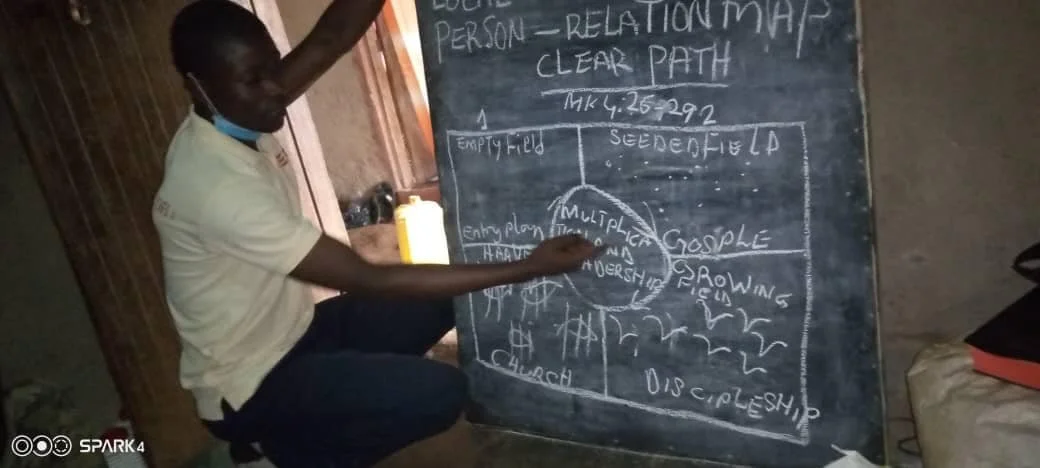 PERSON - RELATION MAP
CLEAR PATH
MK 4:26-29.2
1
EMPTY FIELD
SEEDED FIELD
Entry plan
GOSPLE
MULTIPLICA
AND
ADERSHIP
HARVE
GROWING
FIELD
CHURCH
DISCIPLESHIP
SPARK 4